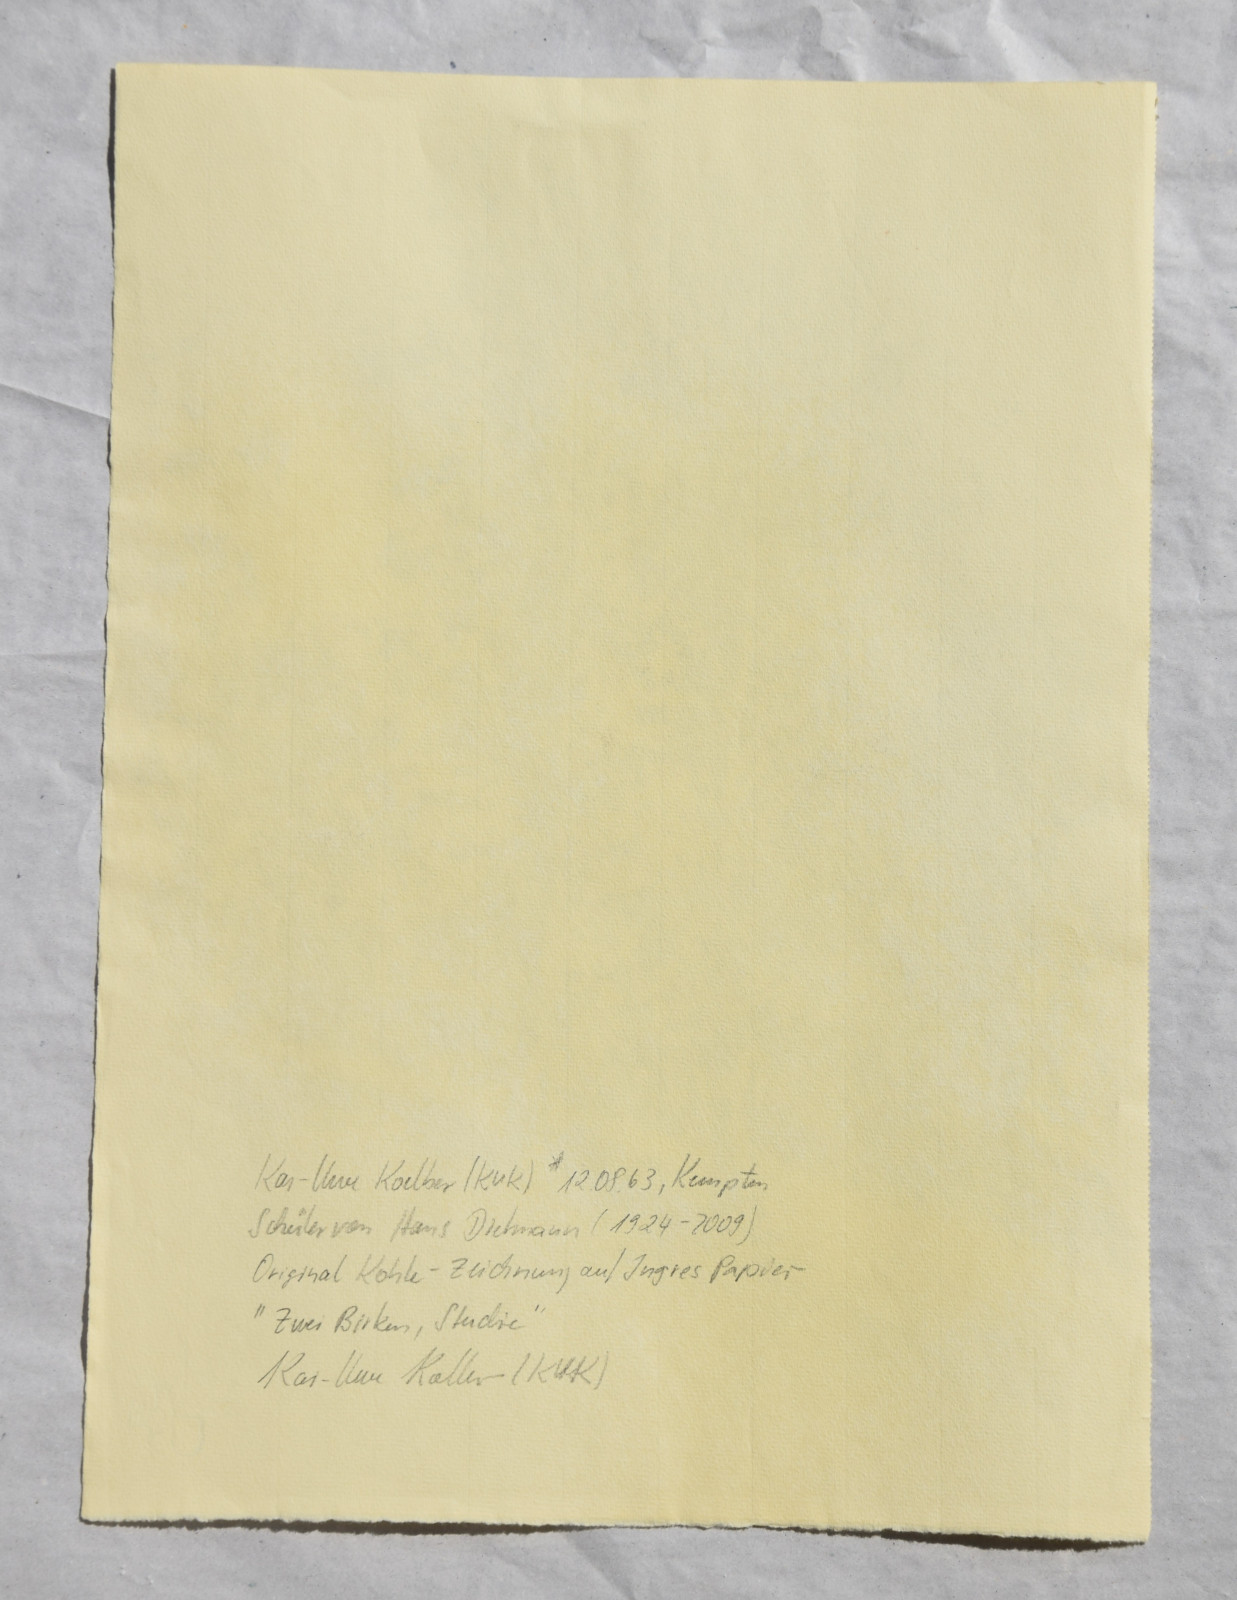 Kai-Uwe Koelber (KUK) * 12.08.63, Kempten
Schüler von Hans Dietmann (1924-2009)
Original Kohle-Zeichnung auf Ingres Papier
"Zwei Birken, Studie"
Kai-Uwe (KUK)